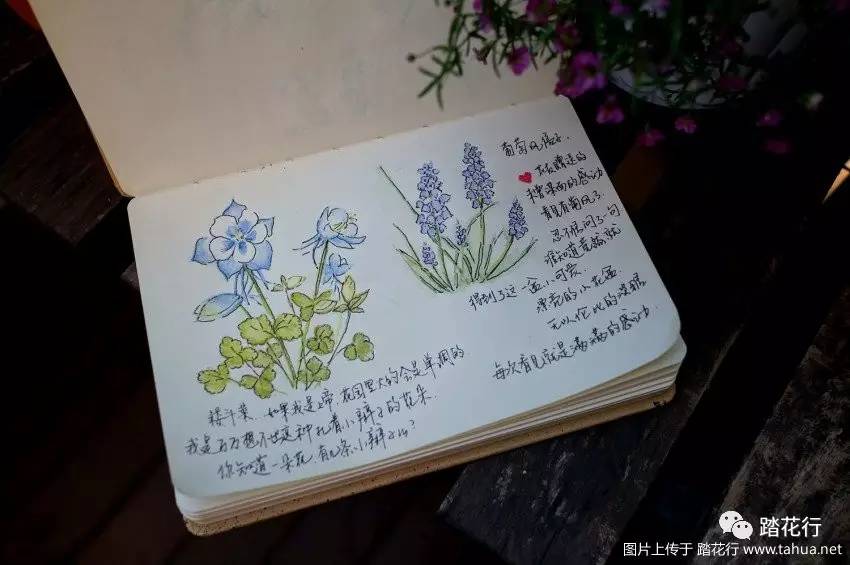 耧斗菜、如果我是上帝,花园里大约会是单调的
我是万万想不出这种扎着小辫子的花朵.
你知道一朵花,有几条小辫子么?
葡萄风信子.
的
的感动
看见葡萄风了.
忍不住问了一句
谁知道黄鹂就
得到了这一盆小可爱.
漂亮的小花盆.
无以伦比的
每次看见就是满满的感动.
踏花行
图片上传于 踏花行 www.tahua.net